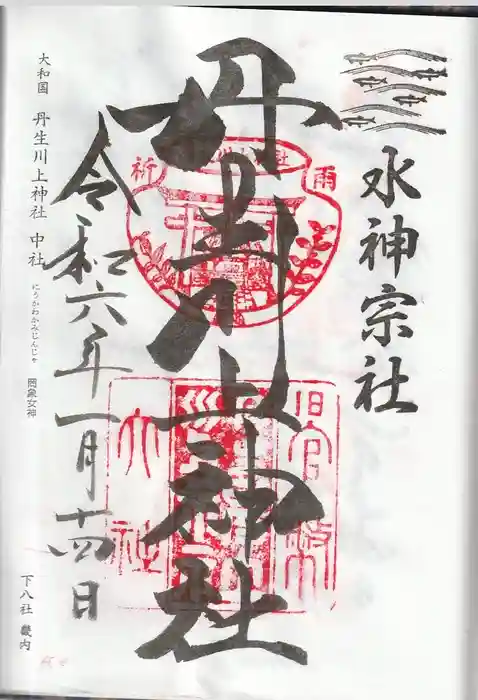 水神宗社
丹生川上神社
令和六年一月十四日
大和国 丹生川上神社 中社
にうかわかみじんじゃ
罔象女神
下八社 畿内
雨
祈
旧官幣
大社